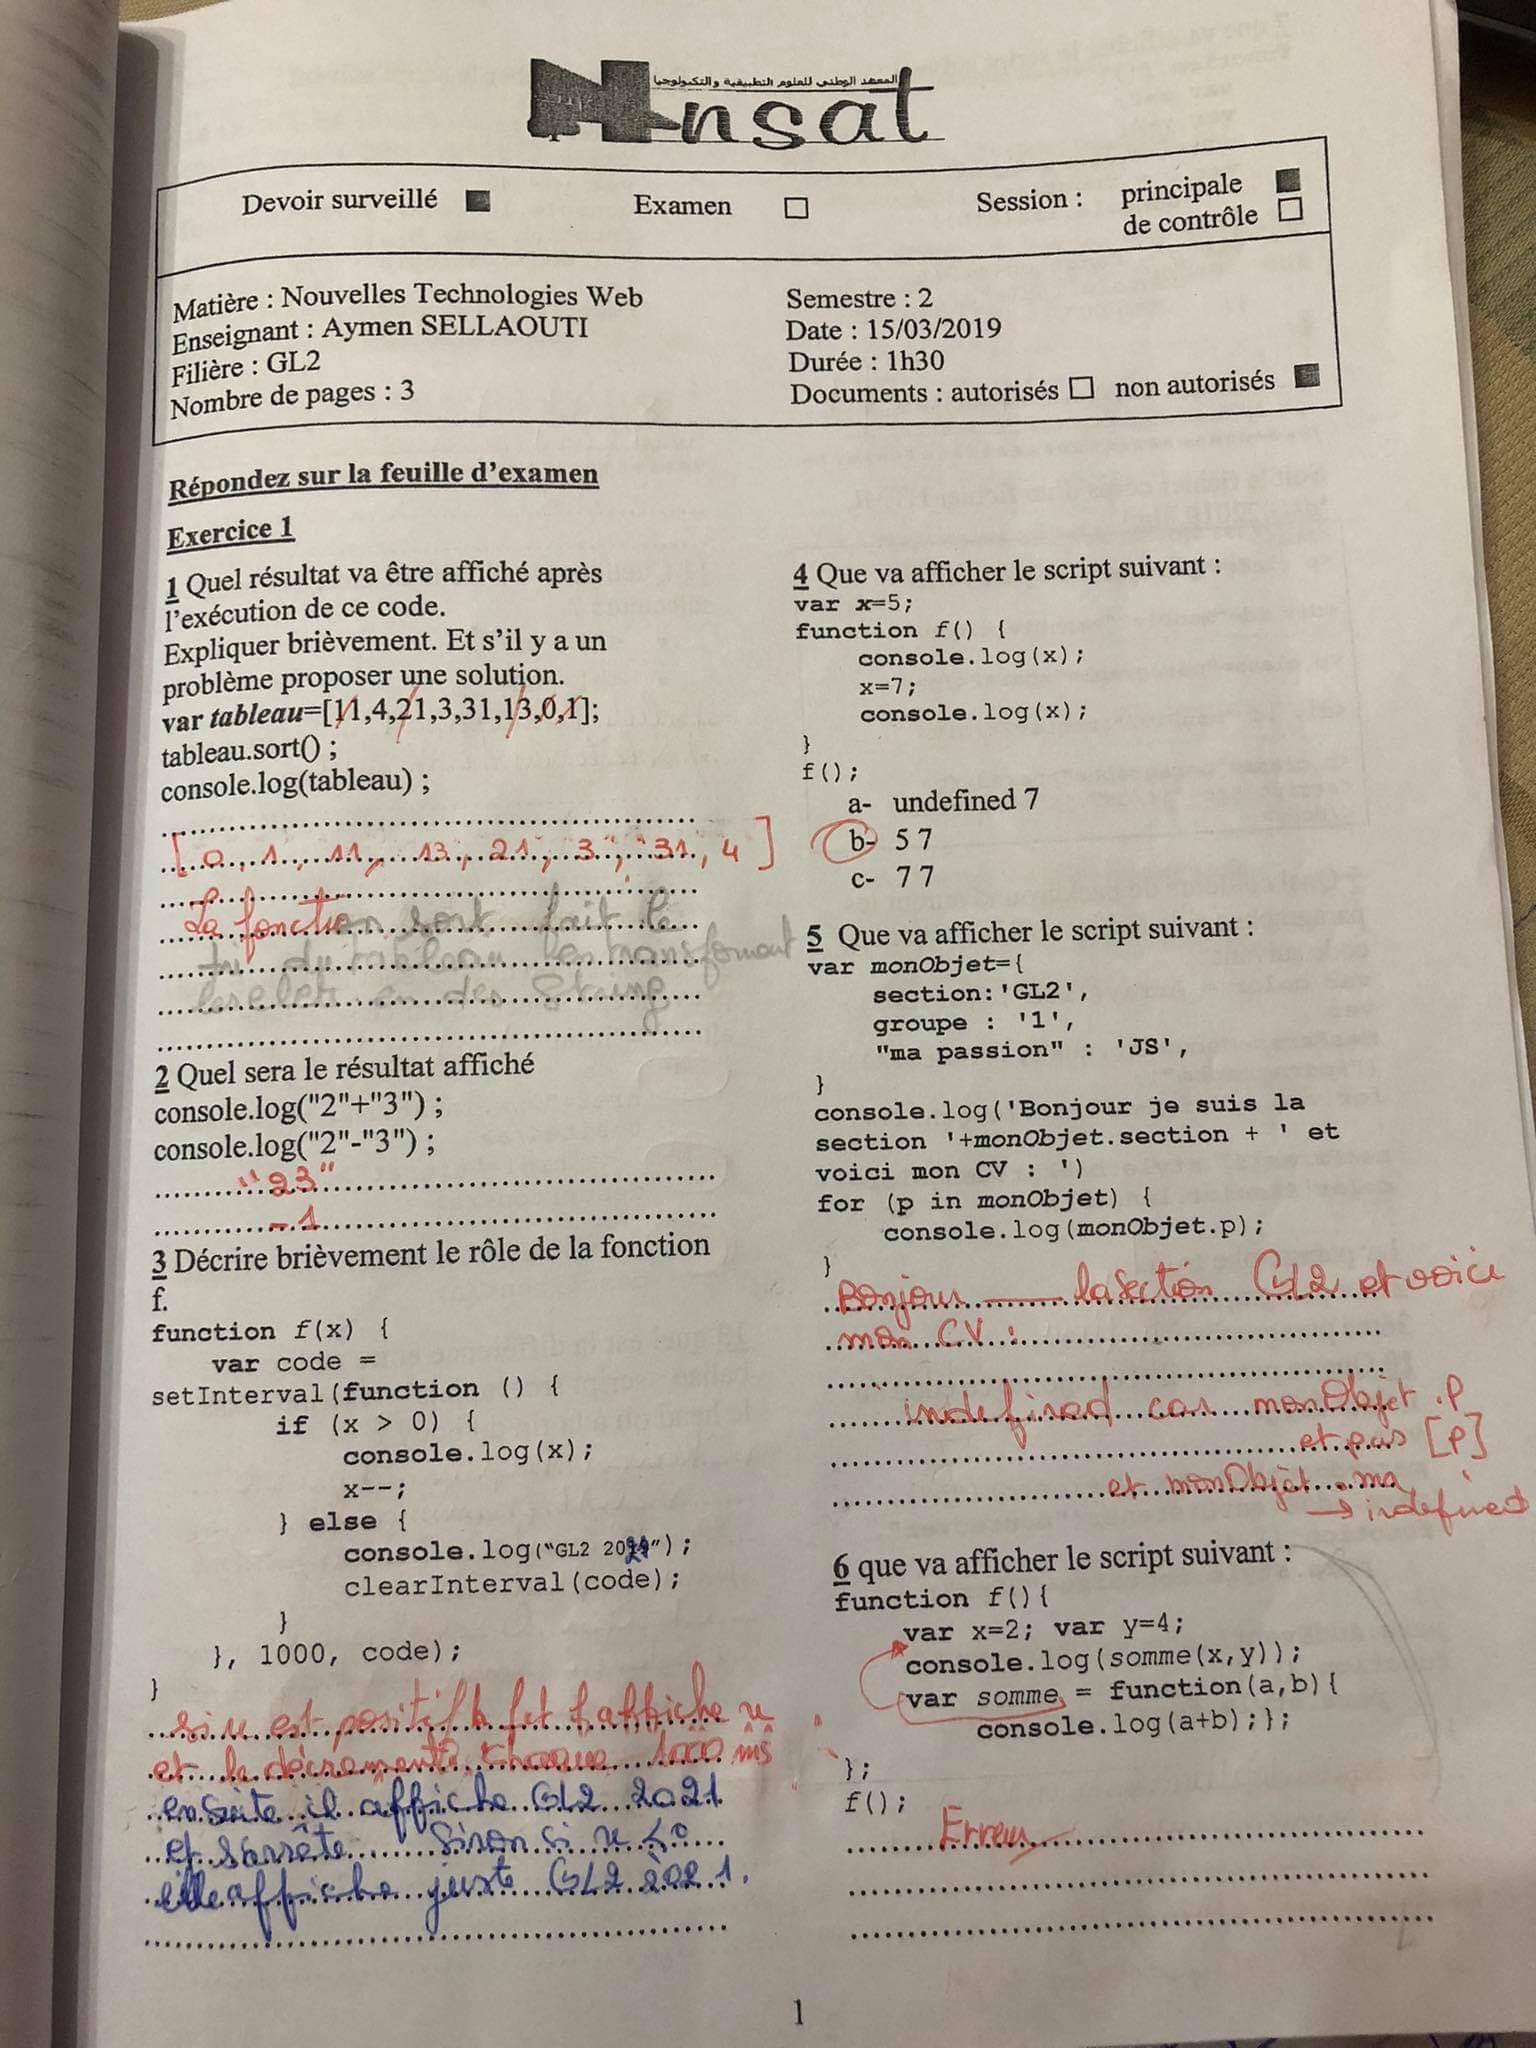 المعهد الوطني للعلوم التطبيقية والتكنولوجيا
nsat
Devoir surveillé
Examen
Session : principale
de contrôle
Matière : Nouvelles Technologies Web
Enseignant : Aymen SELLAOUTI
Filière : GL2
Nombre de pages : 3
Semestre : 2
Date : 15/03/2019
Durée : 1h30
Documents : autorisés non autorisés
Répondez sur la feuille d'examen
Exercice 1
1 Quel résultat va être affiché après
l'exécution de ce code.
Expliquer brièvement. Et s'il y a un
problème proposer une solution.
var tableau=[11,4,21,3,31,13,0,1];
tableau.sort() ;
console.log(tableau) ;
[ 0, 1, 11, 13, 21, 3, 31, 4 ]
La fonction sort fait le
tri du tableau en transformant
les elets en des String
2 Quel sera le résultat affiché
console.log("2"+"3") ;
console.log("2"-"3") ;
"23"
-1
3 Décrire brièvement le rôle de la fonction
f.
function f(x) {
var code =
setInterval(function () {
if (x > 0) {
console.log(x);
x--;
} else {
console.log("GL2 2021");
clearInterval(code);
}
}, 1000, code);
}
si x est positif la fct f affiche x
et le décrémente chaque 1000 ms
ensuite il affiche GL2 2021
et s'arrête sinon si x <0
elle affiche juste GL2 2021.
4 Que va afficher le script suivant :
var x=5;
function f() {
console.log(x);
x=7;
console.log(x);
}
f();
a- undefined 7
b- 5 7
c- 7 7
5 Que va afficher le script suivant :
var monObjet={
section:'GL2',
groupe : '1',
"ma passion" : 'JS',
}
console.log('Bonjour je suis la
section '+monObjet.section + ' et
voici mon CV : ')
for (p in monObjet) {
console.log(monObjet.p);
}
Bonjour la section GL2 et voici
mon CV :
indefined car monObjet .p
et pas [p]
et monObjet . ma
→ indefined
6 que va afficher le script suivant :
function f(){
var x=2; var y=4;
console.log(somme(x,y));
var somme = function(a,b){
console.log(a+b);};
};
f();
Erreur
1